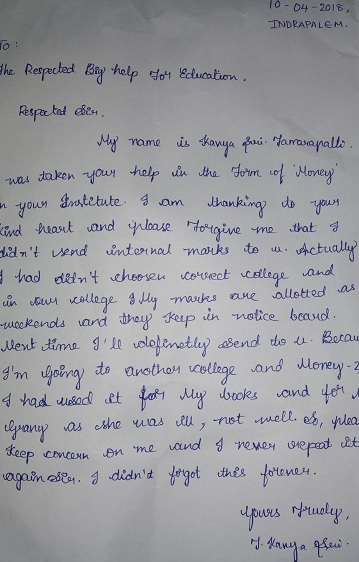 10-04-2018,
INDRAPALEM.
To:
The Respected Big help For Education.
Respected Sir.
My name is Kanya Sri. Tamarapalli.
was taken your help in the Form of 'Money'
n your Institute. I am thanking to your
kind heart and please Forgive me that I
didn't send internal marks to u. Actually
I had didn't choosen correct college and
in our college I My marks are allotted as
weekends and they keep in notice board.
Next time I'll definetly send to u. Becau
I'm going to another college and Money-
I had used it for My books and for
Grany as she was ill, not well so, plea
Keep concern on me and I never repeat it
again sir. I didn't forgot this forever.
Yours Truely,
T. Kanya Sri.